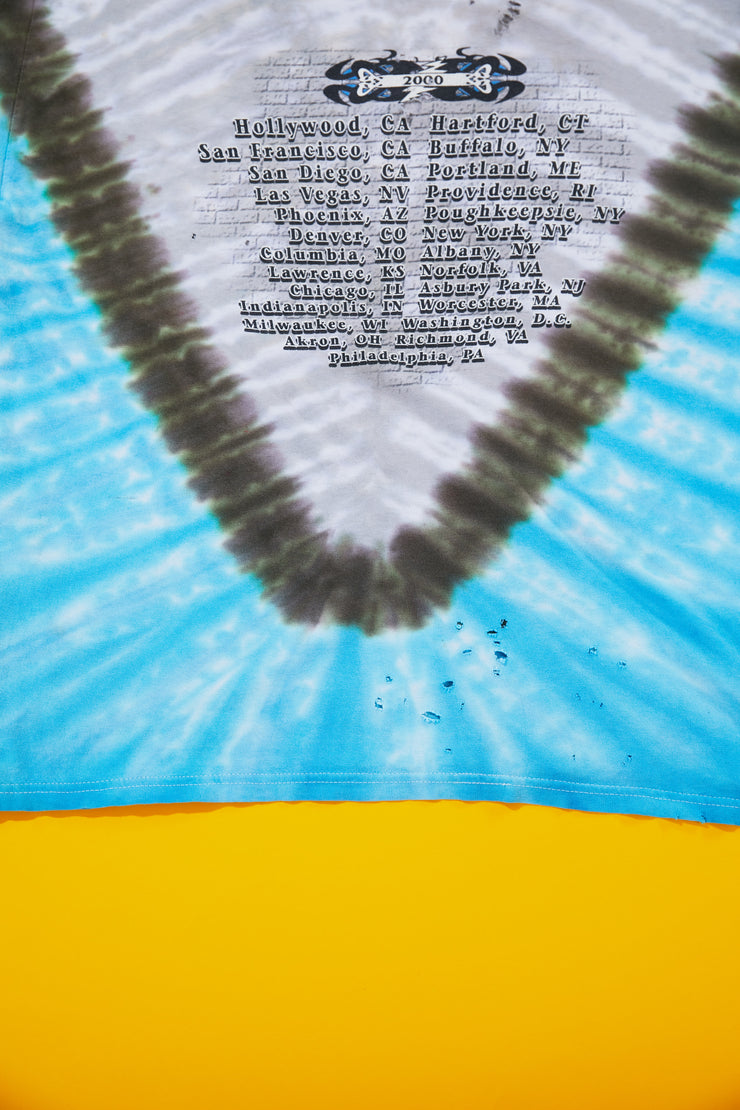 2000
Hollywood, CA Hartford, CT
San Francisco, CA Buffalo, NY
San Diego, CA Portland, ME
Las Vegas, NV Providence, RI
Phoenix, AZ Poughkeepsie, NY
Denver, CO New York, NY
Columbia, MO Albany, NY
Lawrence, KS Norfolk, VA
Chicago, IL Asbury Park, NJ
Indianapolis, IN Worcester, MA
Milwaukee, WI Washington, D.C.
Akron, OH Richmond, VA
Philadelphia, PA